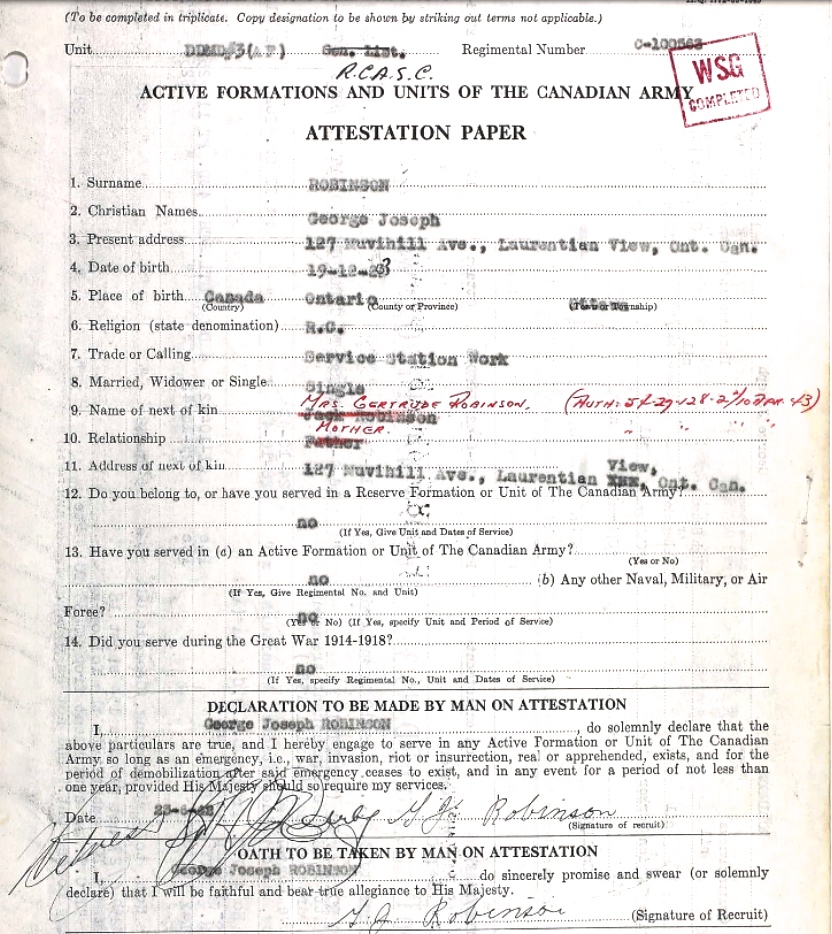 (To be completed in triplicate. Copy designation to be shown by striking out terms not applicable.)
Unit Gen. List. Regimental Number
R.C.A.S.C.
WSG
COMPLETED
ACTIVE FORMATIONS AND UNITS OF THE CANADIAN ARMY
ATTESTATION PAPER
1. Surname ROBINSON
2. Christian Names George Joseph
3. Present address 127 Muvihill Ave., Laurentian View, Ont. Can.
4. Date of birth
5. Place of birth Canada Ontario
(Country) (County or Province) (Town or Township)
6. Religion (state denomination) R.C.
7. Trade or Calling Service Station Work
8. Married, Widower or Single Single
MRS. GERTRUDE ROBINSON.
9. Name of next of kin Jack Robinson
MOTHER.
10. Relationship Father
View,
11. Address of next of kin 127 Muvihill Ave., Laurentian XXX, Ont. Can.
12. Do you belong to, or have you served in a Reserve Formation or Unit of The Canadian Army?
no
(If Yes, Give Unit and Dates of Service)
13. Have you served in (a) an Active Formation or Unit of The Canadian Army?
(Yes or No)
no (b) Any other Naval, Military, or Air
(If Yes, Give Regimental No. and Unit)
Force? no
(Yes or No) (If Yes, specify Unit and Period of Service)
14. Did you serve during the Great War 1914-1918?
no
(If Yes, specify Regimental No., Unit and Dates of Service)
DECLARATION TO BE MADE BY MAN ON ATTESTATION
I, George Joseph ROBINSON, do solemnly declare that the
above particulars are true, and I hereby engage to serve in any Active Formation or Unit of The Canadian
Army so long as an emergency, i.e., war, invasion, riot or insurrection, real or apprehended, exists, and for the
period of demobilization after said emergency ceases to exist, and in any event for a period of not less than
one year, provided His Majesty should so require my services.
Date G.J. Robinson
Witness (Signature of recruit)
OATH TO BE TAKEN BY MAN ON ATTESTATION
I, George Joseph ROBINSON do sincerely promise and swear (or solemnly
declare) that I will be faithful and bear true allegiance to His Majesty.
G.J. Robinson (Signature of Recruit)